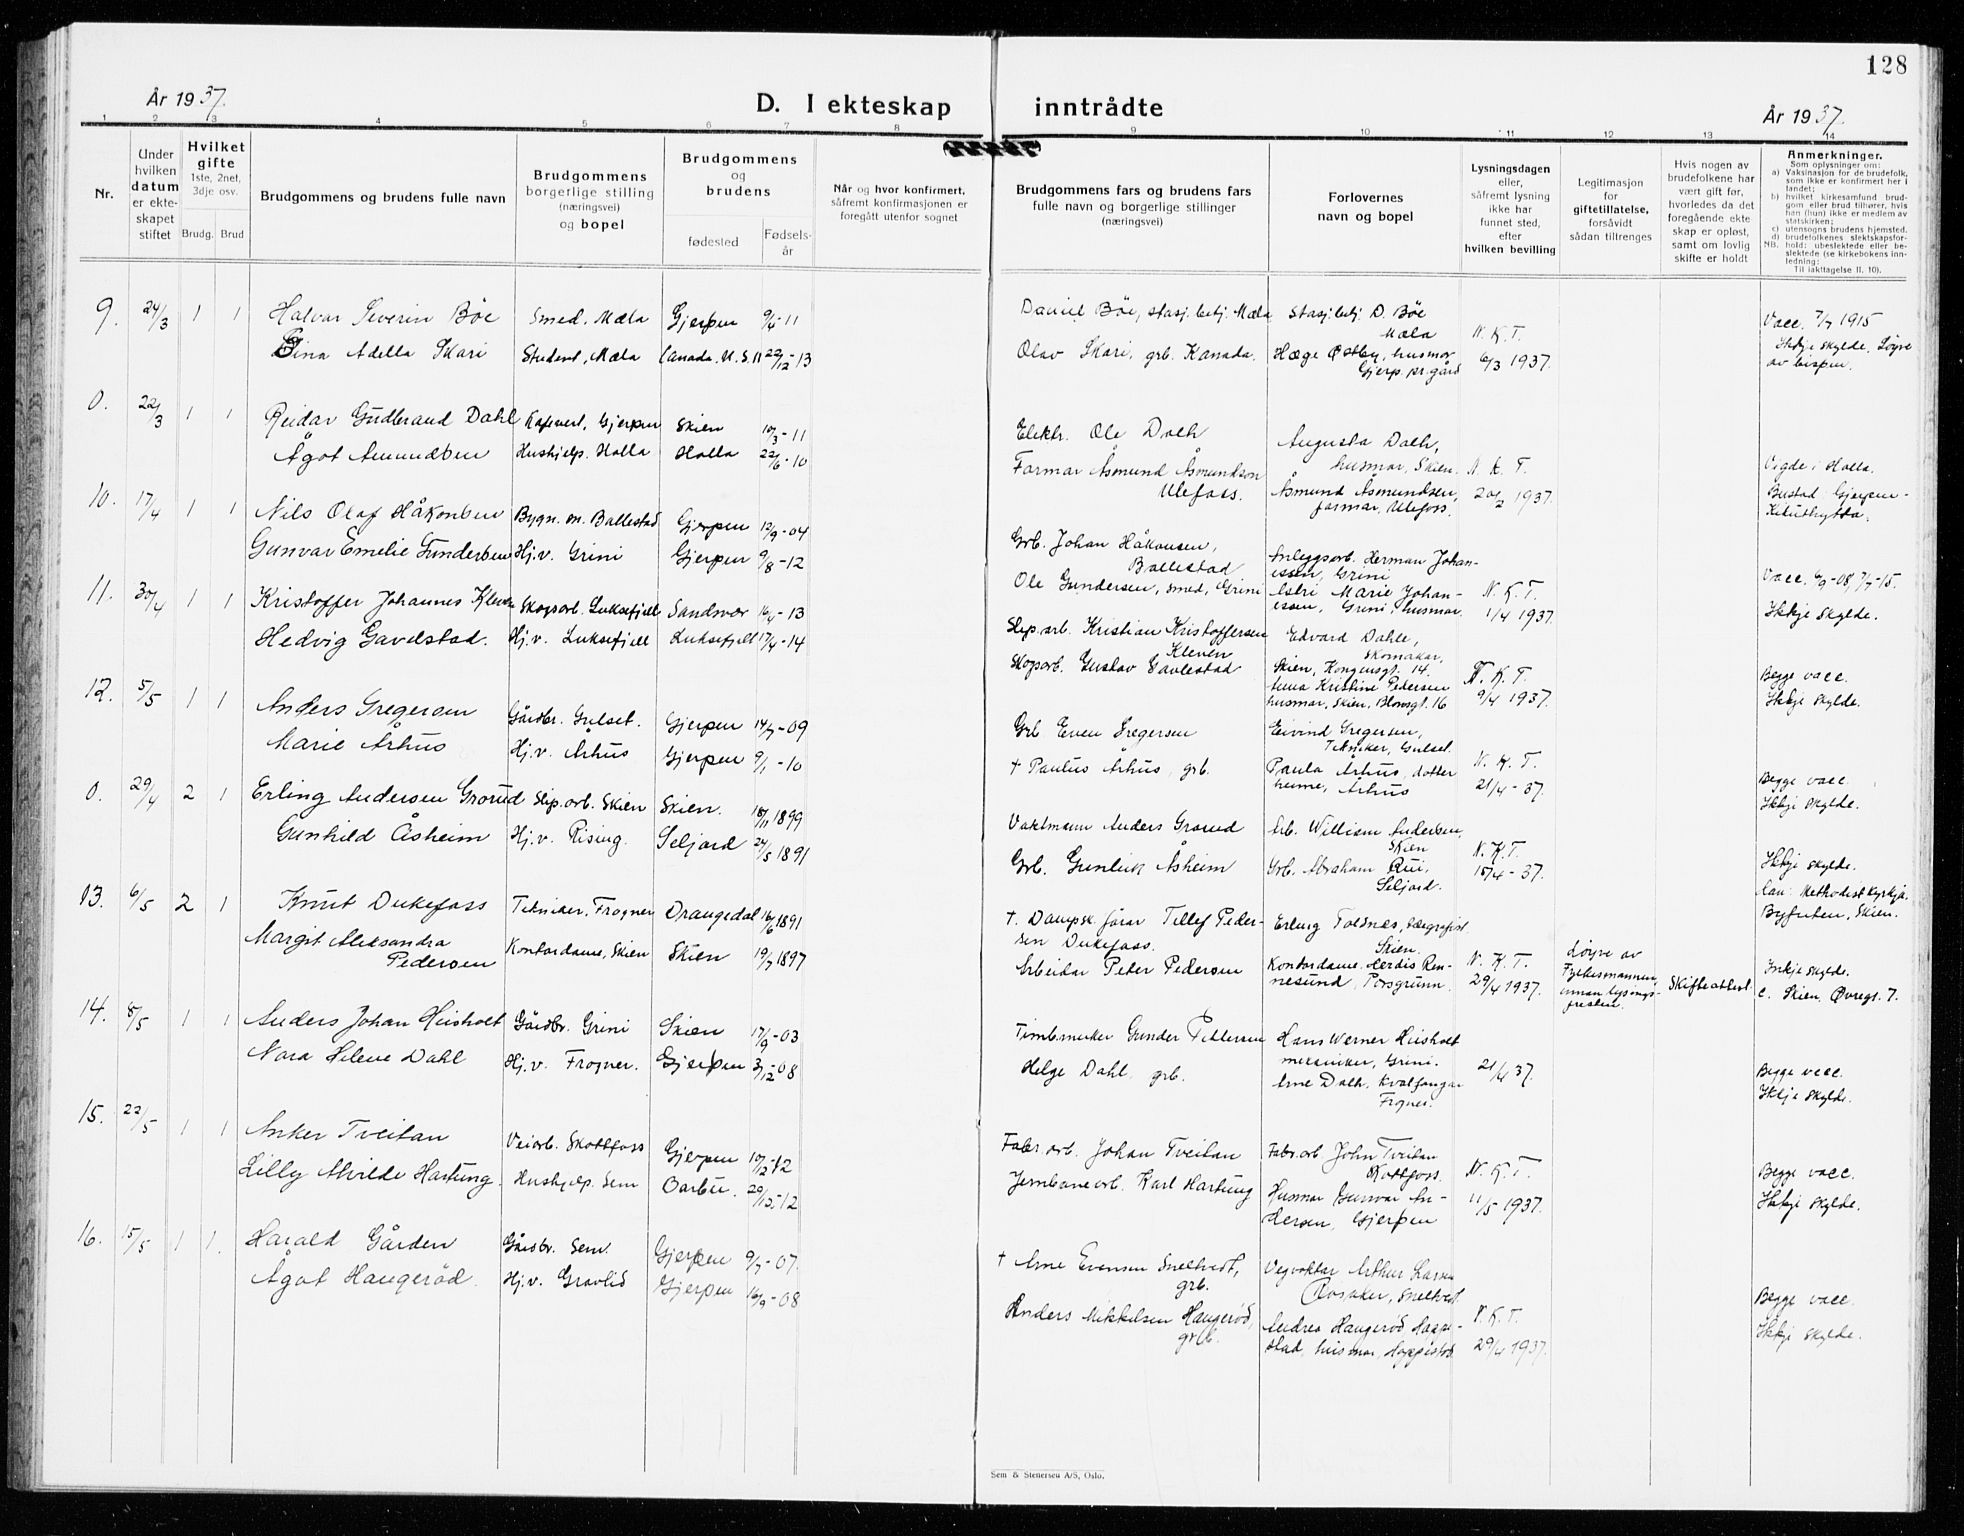 128
År 1937.
D. I ekteskap inntrådte
År 1937.
1 2 3 4 5 6 7 8 9 10 11 12 13 14
Nr.
Under hvilken datum er ekteskapet stiftet
Hvilket gifte
1ste, 2net, 3dje osv.
Brudg. Brud
Brudgommens og brudens fulle navn
Brudgommens borgerlige stilling (næringsvei) og bopel
Brudgommens og brudens
fødested
Fødselsår
Når og hvor konfirmert, såfremt konfirmasjonen er foregått utenfor sognet
Brudgommens fars og brudens fars fulle navn og borgerlige stillinger (næringsvei)
Forlovernes navn og bopel
Lysningsdagen eller, såfremt lysning ikke har funnet sted, efter hvilken bevilling
Legitimasjon for giftetillatelse, forsåvidt sådan tiltrenges
Hvis nogen av brudefolkene har vært gift før, hvorledes da det foregående ekteskap er opløst, samt om lovlig skifte er holdt
Anmerkninger.
Som oplysninger om:
a) Vaksinasjon for de brudefolk, som ikke er konfirmert her i landet;
b) hvilket kirkesamfund brudgom eller brud tilhører, hvis han (hun) ikke er medlem av statskirken;
c) utensogns brudens hjemsted.
d) brudefolkenes slektskapsforhold: ubeslektede eller beslektede (se kirkebokens innledning:
NB.
Til iakttagelse II. 10).
9. 24/3 1 1 Halvar Severin Böe Smed, Mæla Gjerpen 9/4-11
Daniel Böe, stasj.betj. Mæla Stasj.betj. D. Böe Mæla
Vacc. 7/7 1915
Gina Adella Skari Student, Mæla Canada. U.S.A 22/12-13
Olav Skari, grb. Kanada. Hæge Østby, husmor Gjerp. pr.gård
N. K. T. 6/3 1937.
Ikkje skylde. Løyve av bispen.
0. 22/3 1 1 Reidar Gudbrand Dahl Gjerpen Skien 10/3-11
Elektr. Ole Dalh Augusta Dalh, husmor, Skien.
Vigde i Holla.
Ågot Amundsen Hushjelp. Holla Holla 22/6-10
Farmar Åsmund Åsmundson Ulefoss. Åsmund Åsmundsen, farmar, Ulefoss.
N. K. T. 20/2 1937.
Bustad: Gjerpen-
10. 17/4 1 1 Nils Olaf Håkonsen Bygn. m. Ballestad Gjerpen 12/9-04
Grb. Johan Håkonsen, Ballestad Anleggsarb. Herman Johanessen, Grini
Gunvar Emelie Gundersen Hj.v. Grini Gjerpen 9/8-12
Ole Gundersen, smed, Grini Astri Marie Johanessen, Grini, husmor.
N. K. T. 1/4 1937.
Ikkje skylde.
11. 30/4 1 1 Kristoffer Johannes Kleven Skogsarb. Luksefjell Sandsvær 16/4-13
Slip.arb. Kristian Kristoffersen Kleven Edvard Dahle, skomakar, Skien, Kongensgt. 14.
Begge vacc.
Hedvig Gavelstad. Hj.v. Luksefjell Luksefjell 17/4-14
Skogsarb. Gustav Gavlestad Anna Kristine Pedersen husmor, Skien, Blomsgt. 16
N. K. T. 9/4 1937.
Ikkje skylde.
12. 5/5 1 1 Anders Gregersen Gårdbr. Gulset. Gjerpen 14/7-09
Grb Even Gregersen Eivind Gregersen, Tekniker, Gulset.
Begge vacc.
Marie Århus Hj.v. Århus Gjerpen 9/1-10
† Paulus Århus, grb. Paula Århus, dotter heime, Århus
N. K. T. 21/4-37.
Ikkje skylde.
0. 29/4 2 1 Erling Andersen Grorud Slip.arb. Skien Skien. 18/11 1899
Vaktmann Anders Grorud Arb. William Andersen, Skien
Ikkje skylde.
Gunhild Åsheim Hj.v. Rising. Seljord 24/5 1891
Grb. Gunleik Åsheim Grb. Abraham Rui, Seljord.
N. K. T. 15/4-37.
Methodistkyrkja.
13. 6/5 2 1 Knut Dukefoss Tekniker, Frogner Drangedal 16/6 1891
† Dampsk.förar Tellef Pedersen Dukefoss. Erling Foldnes, telegrafist Skien.
Margit Aleksandra Pedersen Kontordame, Skien Skien 19/7 1897
Arbeidar Peter Pedersen Kontordame Herdis Rennesund, Porsgrunn
N. K. T. 29/4 1937.
Løyve av Fylkesmannen, innan lysingsfristen.
Skifteattest
Inkje skylde.
c. Skien, Øvregt. 7.
14. 8/5 1 1 Anders Johan Heisholt Gårdbr. Grini Skien 17/9-03
Gunder Pettersen Hans Werner Heisholt mekaniker, Grini.
Begge vacc.
Nora Helene Dahl Hj.v. Frogner. Gjerpen 3/12-08
Helge Dahl, grb. Arne Dalh, Kvalfangar Frogner.
21/4 37.
Ikkje skylde.
15. 22/5 1 1 Anker Tveitan Veiarb. Skottfoss Gjerpen 10/12-12
Fabr.arb. Johan Tveitan Fabr.arb John Tveitan Skottfoss.
Begge vacc.
Lilly Alvilde Hartung. Hushjelp. Sem Barbu. -12
Jernbanearb. Karl Hartung Husmor Gunvor Andersen, Gjerpen
N. K. T. 11/5 1937.
Ikkje skylde.
16. 15/5 1 1. Harald Gården Gårdbr. Sem Gjerpen 9/7-07.
† Arne Evensen Sneltvedt, grb. Vegvoktar Arthur Larsen Rosaker, Sneltvedt
Begge vacc.
Ågot Haugerød. Hj.v. Gravlid Gjerpen 16/9-08
Anders Mikkelsen Haugerød, grb. Andrea Haugerød Hoppestad, husmor, Hoppestad
N. K. T. 29/4 1937.
Ikkje skylde.
Sem & Stenersen A/S, Oslo.